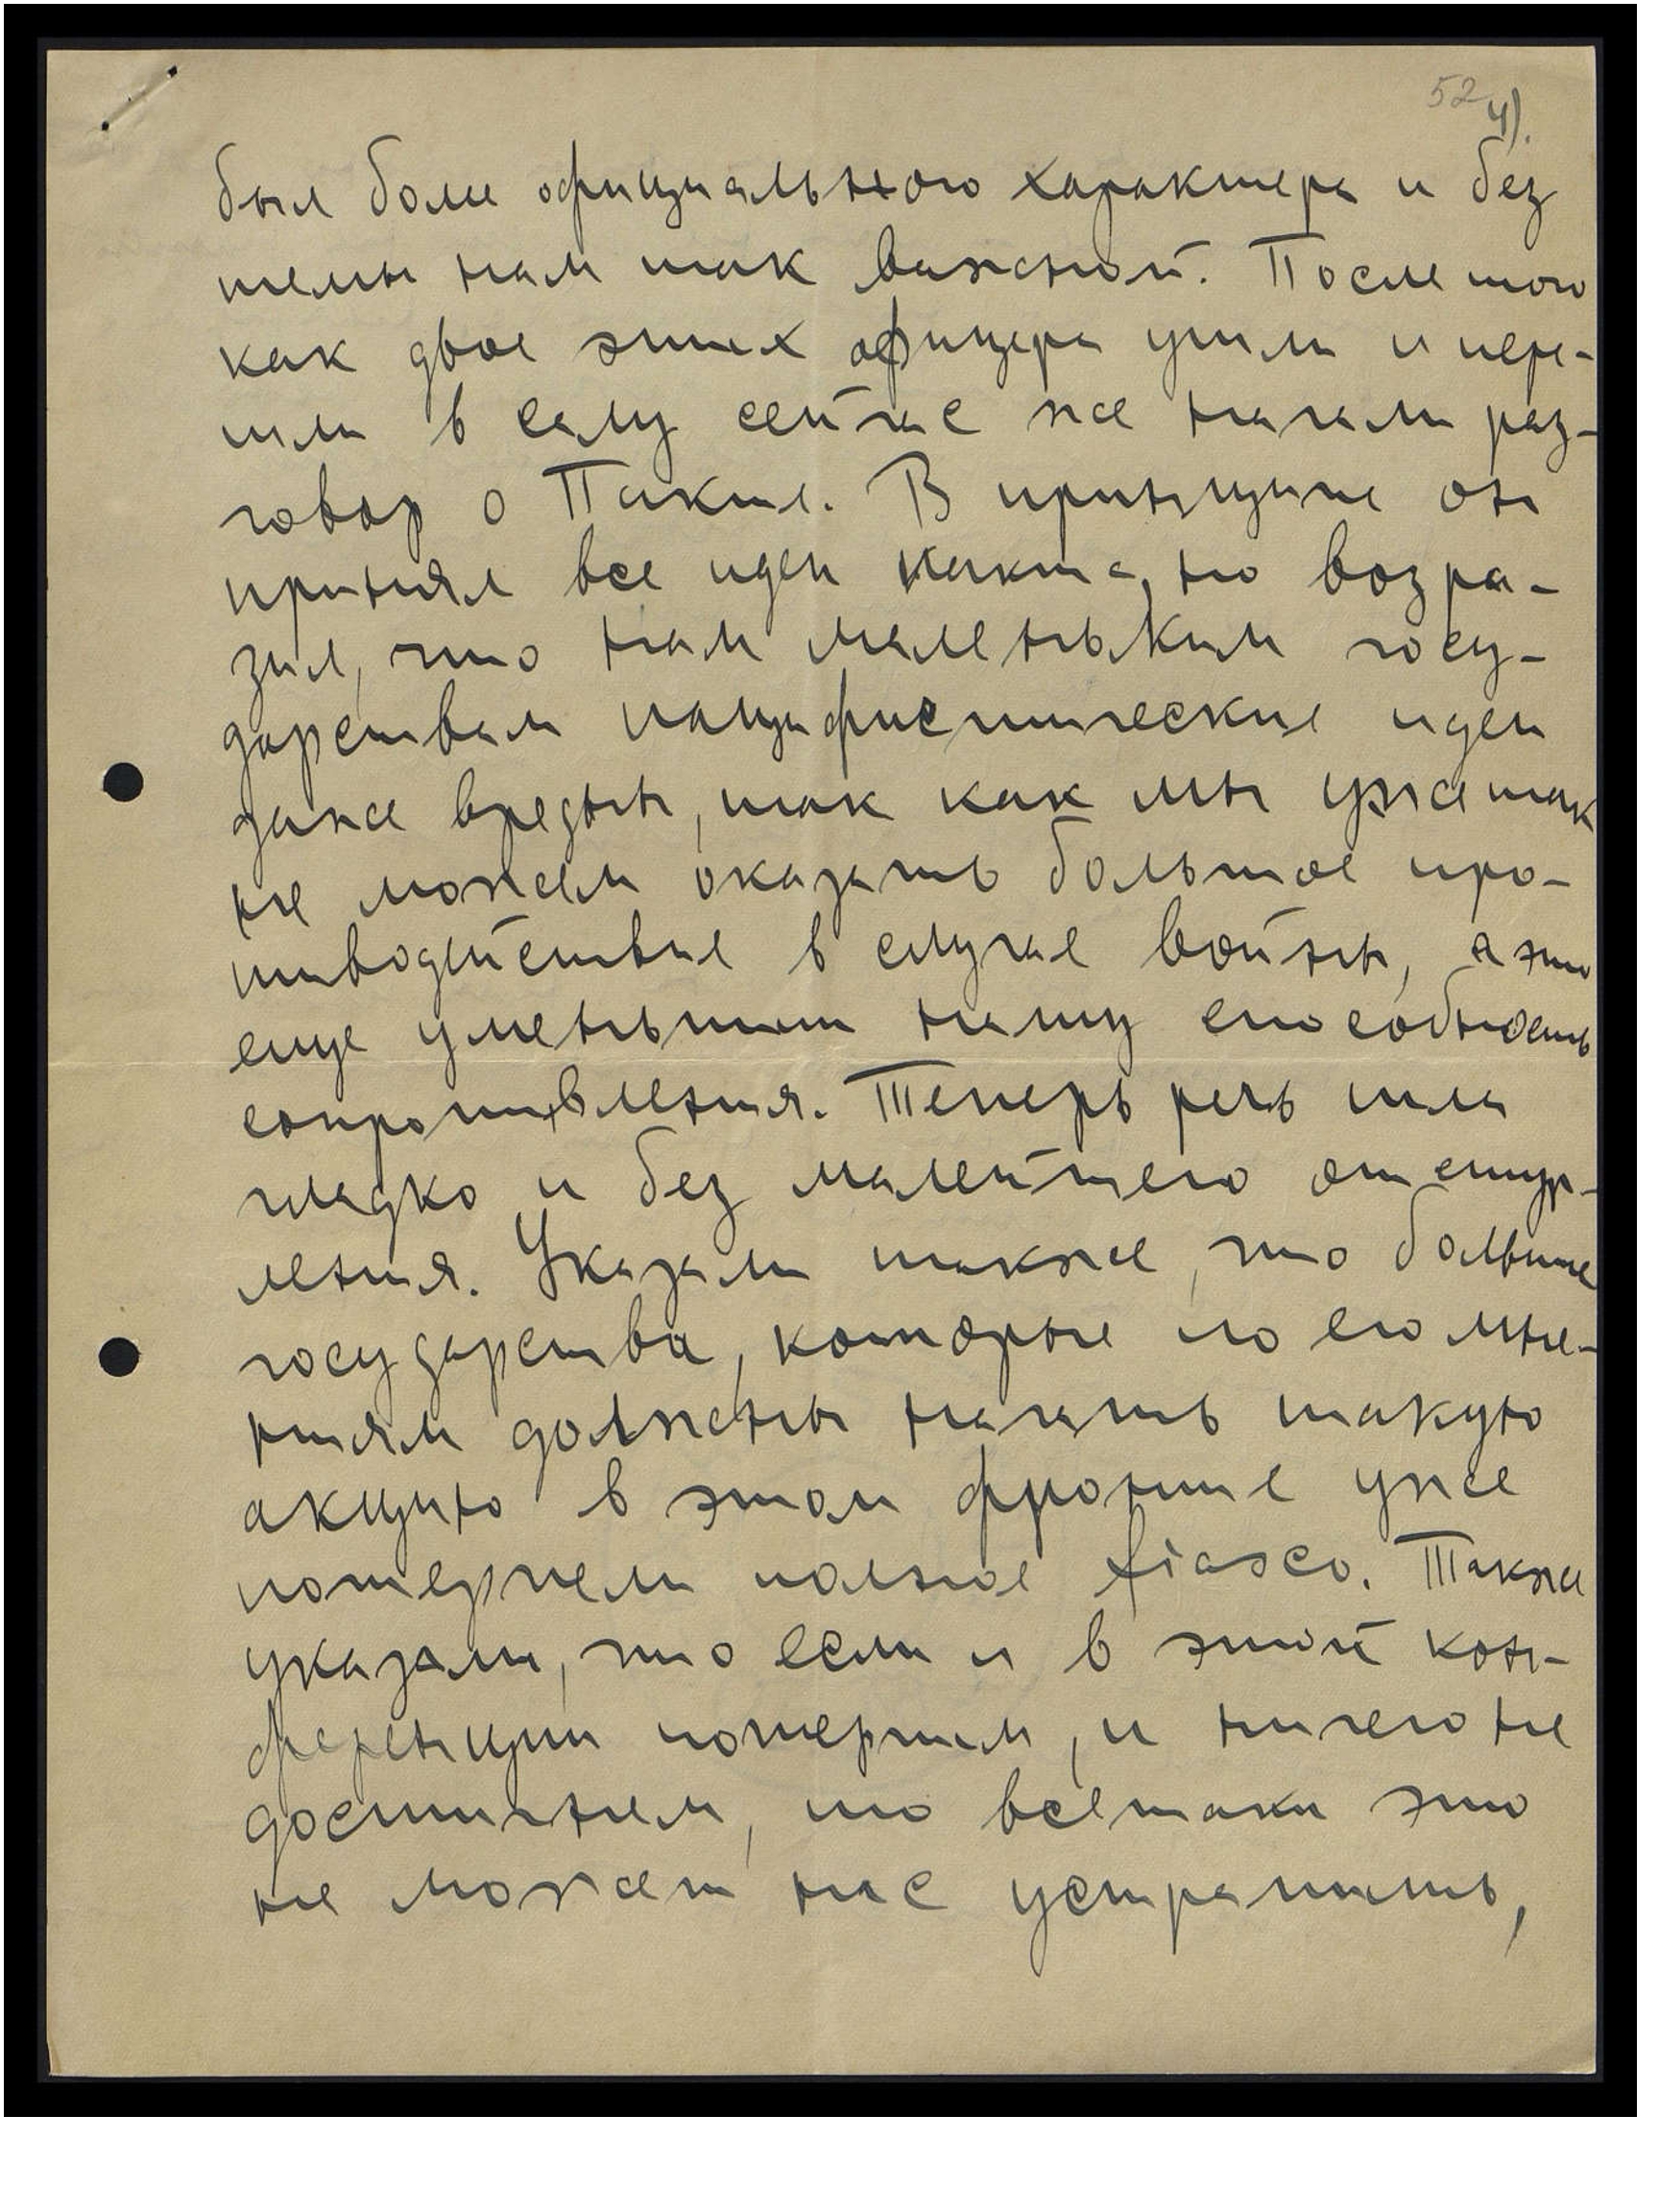 52
4).
был боле официального характера и без
темы нам так важной. После того
как двое этих офицера ушли и пере-
шли в салу сейчас же начали раз-
говор о Пакте. В принципе он
принял все идеи пакта, но возра-
зил, что нам маленьким госу-
дарствам пацифистические идеи
даже вредны, так как мы уже так
не можем оказать большое про-
тиводействие в случае войны, а это
еще уменьшит нашу способность
сопротивления. Теперь речь шла
гладко и без малейшего отступ-
ления. Указали также, что большие
государства, которые по его мне-
ниям должны начать такую
акцию в этом фронте уже
потерпели полное fiasco. Также
указали, что если и в этой кон-
ференции потерпим, и ничего не
достигнем, то всетаки это
не может нас устрашить,